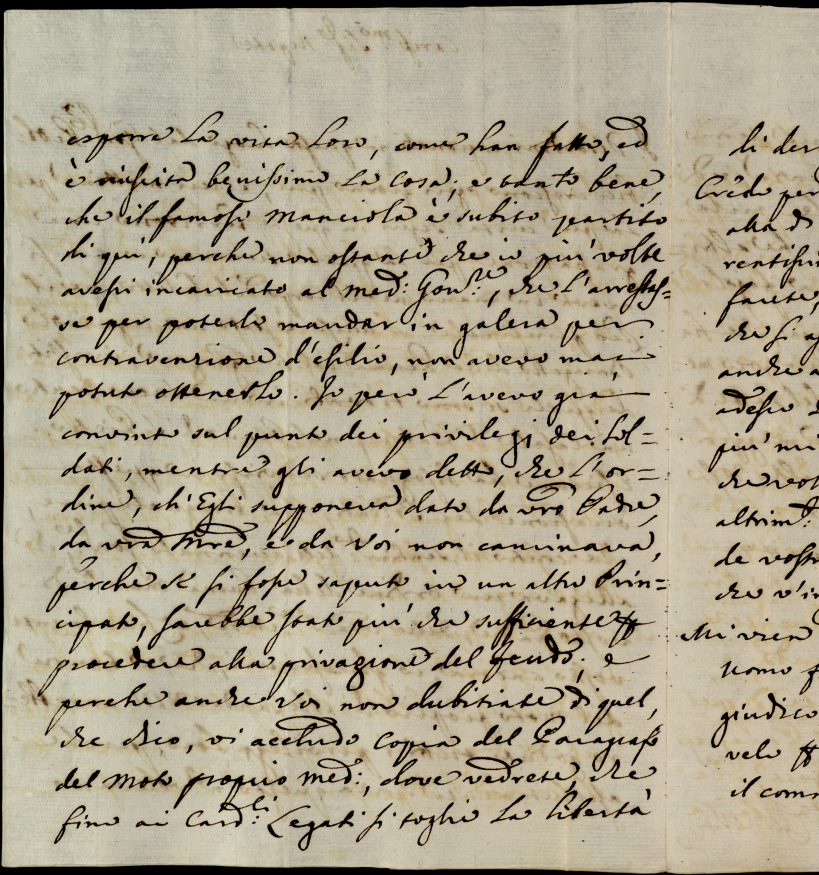 esporre la vita loro, come han fatto, ed
è riuscita benissimo la cosa; e tanto bene,
che il famoso Manciola è subito partito
di quì, perche non ostante che io più volte
avessi incaricato al med: Gov.re, che l'arrestas=
se per poterlo mandar in galera per
contravenzione d'esilio, non avevo mai
potuto ottenerlo. Io però l'avevo già
convinto sul punto dei privilegj dei Sol=
dati, mentre gli avevo detto, che l'or=
dine, ch'Egli supponeva dato da vro Padre,
da vra Mre, e da Voi non caminava,
perche se si fosse saputo in un altro Prin=
cipato, sarebbe stato più che sufficiente p
procedere alla privazione del feudo; e
perche anche Voi non dubitiate di quel,
che dico, vi accludo copia del Paragrafo
del Moto proprio med:, dove vedrete, che
fino ai Card.li Legati si toglie la libertà
di der
Crede per
alla d
rentissi
farete,
che si a
anche a
adesso
più mi
che vos
altrim:
de vostr
che v'in
Mi vien
Uomo f
giudico
velo p
il com